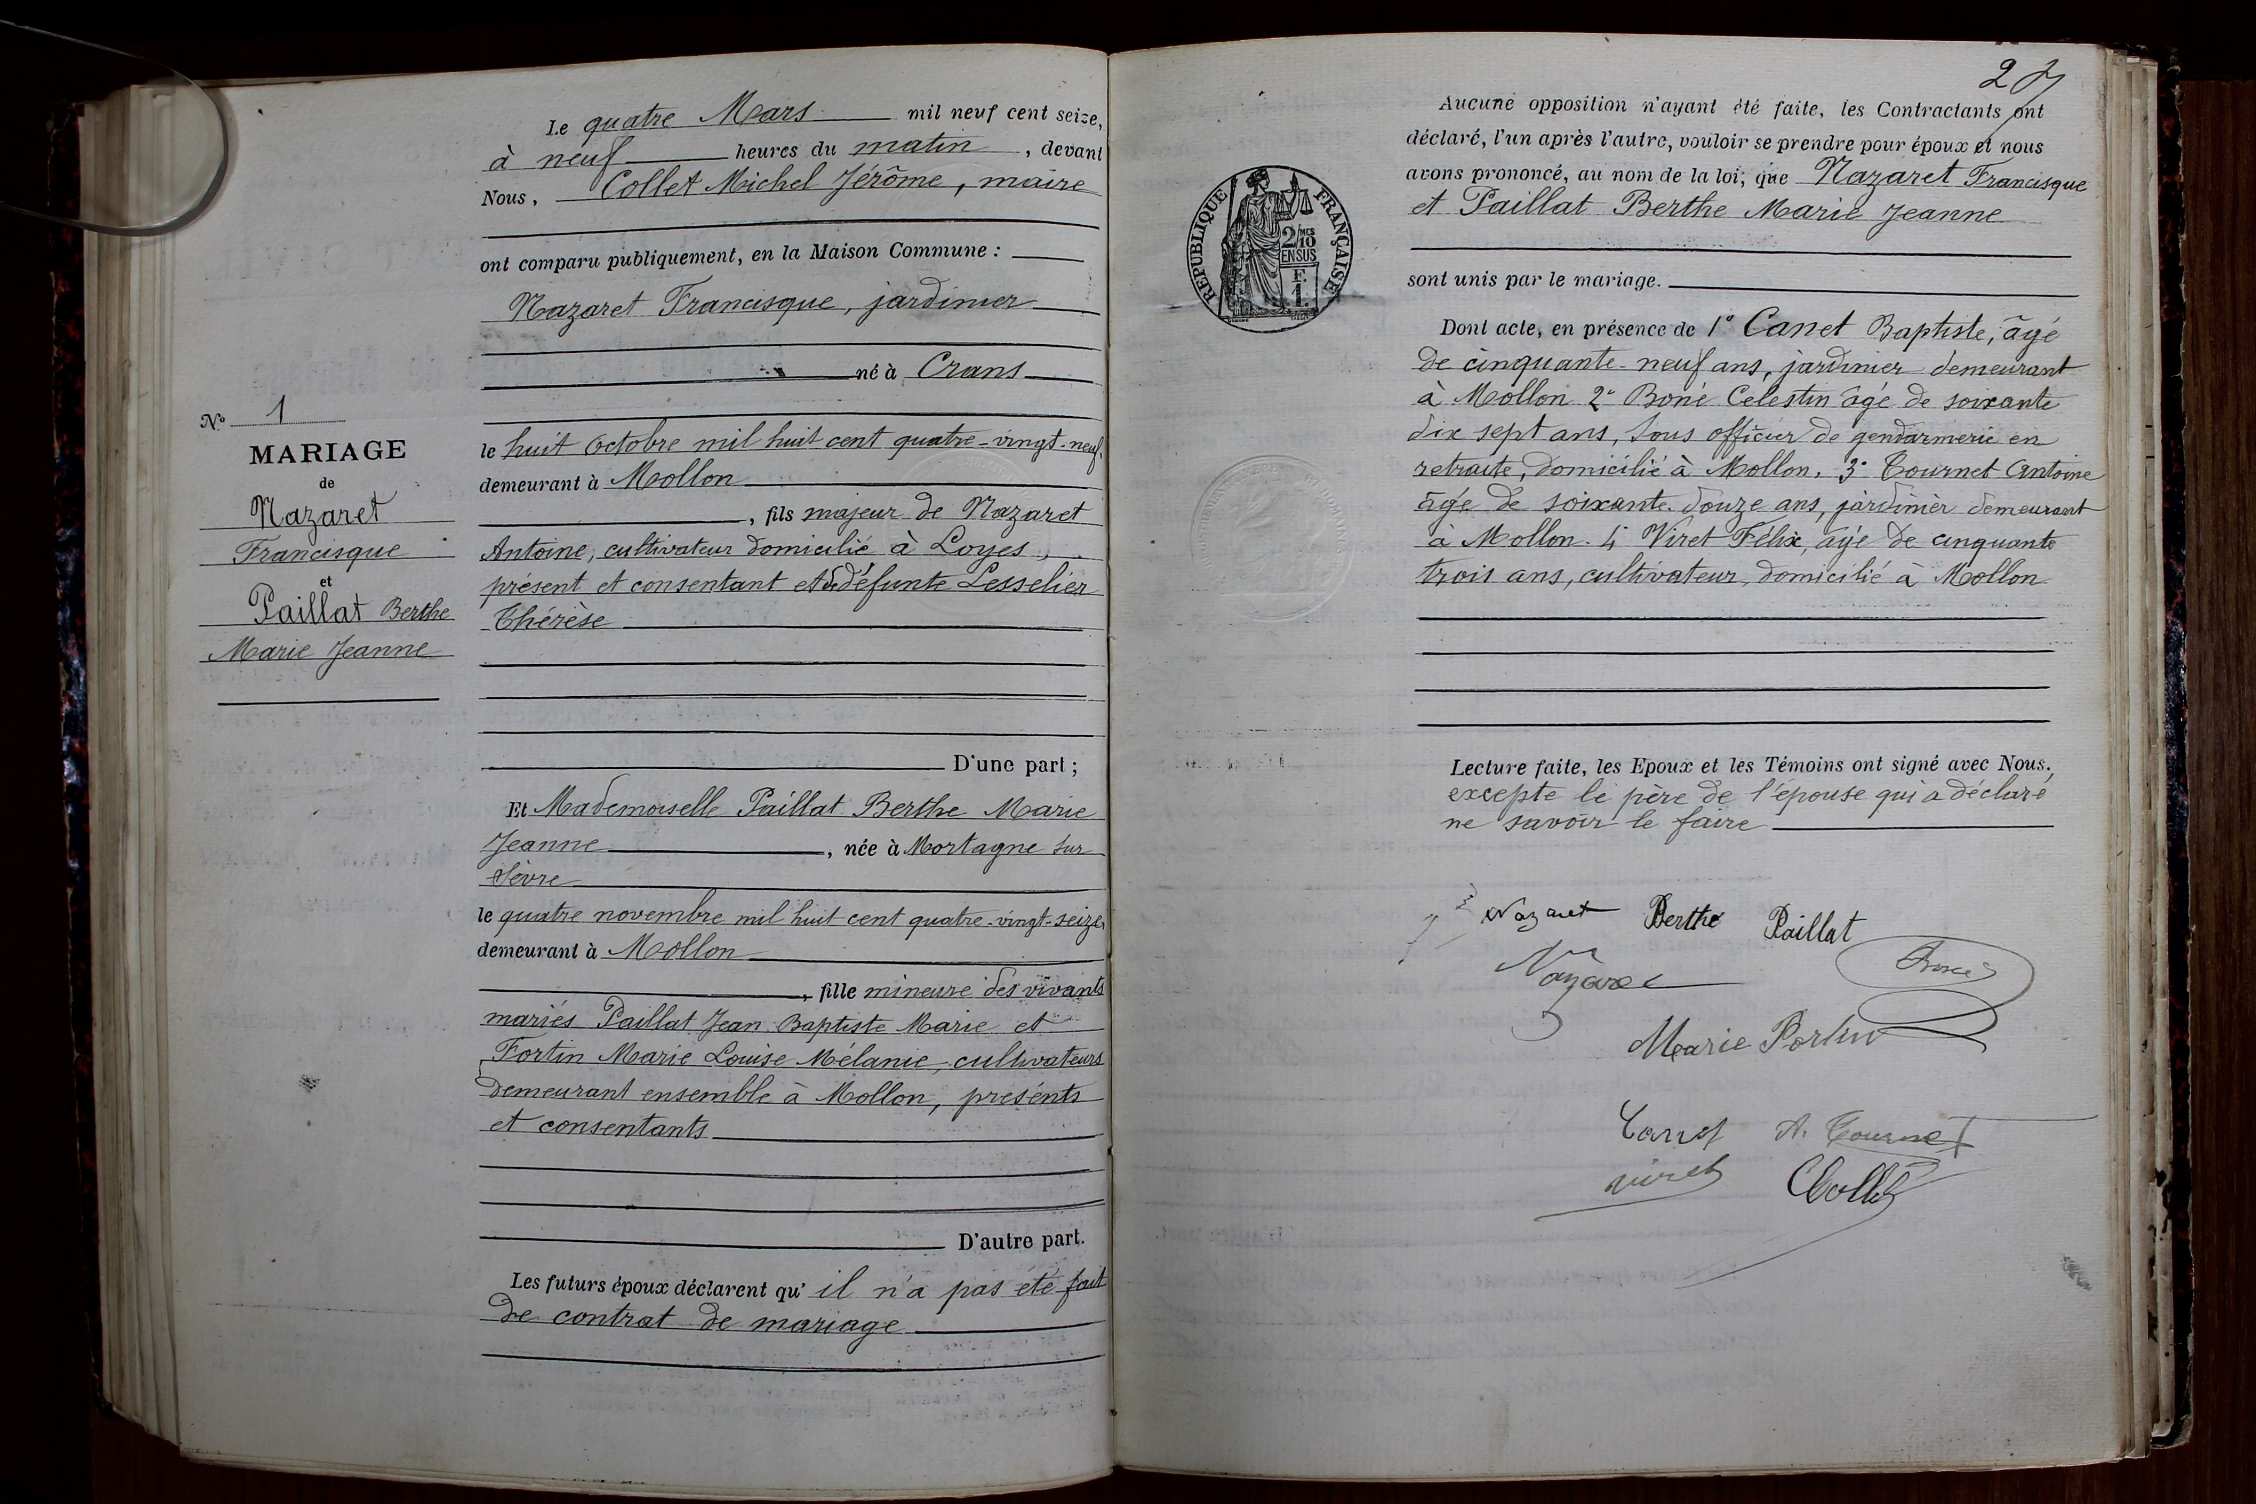 Le quatre Mars mil neuf cent seize,
à neuf heures du matin, devant
Nous, Collet Michel Jérôme, maire
ont comparu publiquement, en la Maison Commune :
Nazaret Francisque, jardinier
né à Crans
le huit Octobre mil huit cent quatre-vingt-neuf,
demeurant à Mollon
, fils majeur de Nazaret
Antoine, cultivateur domicilié à Loyes,
présent et consentant et de défunte Lesselier
Thérèse
D'une part ;
Et Mademoiselle Paillat Berthe Marie
Jeanne, née à Mortagne sur
Sèvre
le quatre novembre mil huit cent quatre-vingt-seize,
demeurant à Mollon
, fille mineure des vivants
mariés Paillat Jean Baptiste Marie et
Fortin Marie Louise Mélanie, cultivateurs
demeurant ensemble à Mollon, présents
et consentants
D'autre part.
Les futurs époux déclarent qu'il n'a pas été fait
de contrat de mariage
N° 1
MARIAGE
de
Nazaret
Francisque
et
Paillat Berthe
Marie Jeanne
2
Aucune opposition n'ayant été faite, les Contractants ont
déclaré, l'un après l'autre, vouloir se prendre pour époux et nous
avons prononcé, au nom de la loi, que Nazaret Francisque
et Paillat Berthe Marie Jeanne
sont unis par le mariage.
RÉPUBLIQUE FRANÇAISE
2/10 MES
EN SUS
F.
1.
Dont acte, en présence de 1° Canet Baptiste, âgé
de cinquante-neuf ans, jardinier demeurant
à Mollon 2° Boné Celestin âgé de soixante
dix sept ans, sous officier de gendarmerie en
retraite, domicilié à Mollon, 3° Tournet Antoine
âgé de soixante-douze ans, jardinier demeurant
à Mollon. 4° Viret Félix, âgé de cinquante
trois ans, cultivateur, domicilié à Mollon
Lecture faite, les Epoux et les Témoins ont signé avec Nous,
excepte le père de l'épouse qui a déclaré
ne savoir le faire
Nazaret Berthe Paillat
Nazaret Boné
Marie Fortin
Canet A. Tournet
Viret Collet